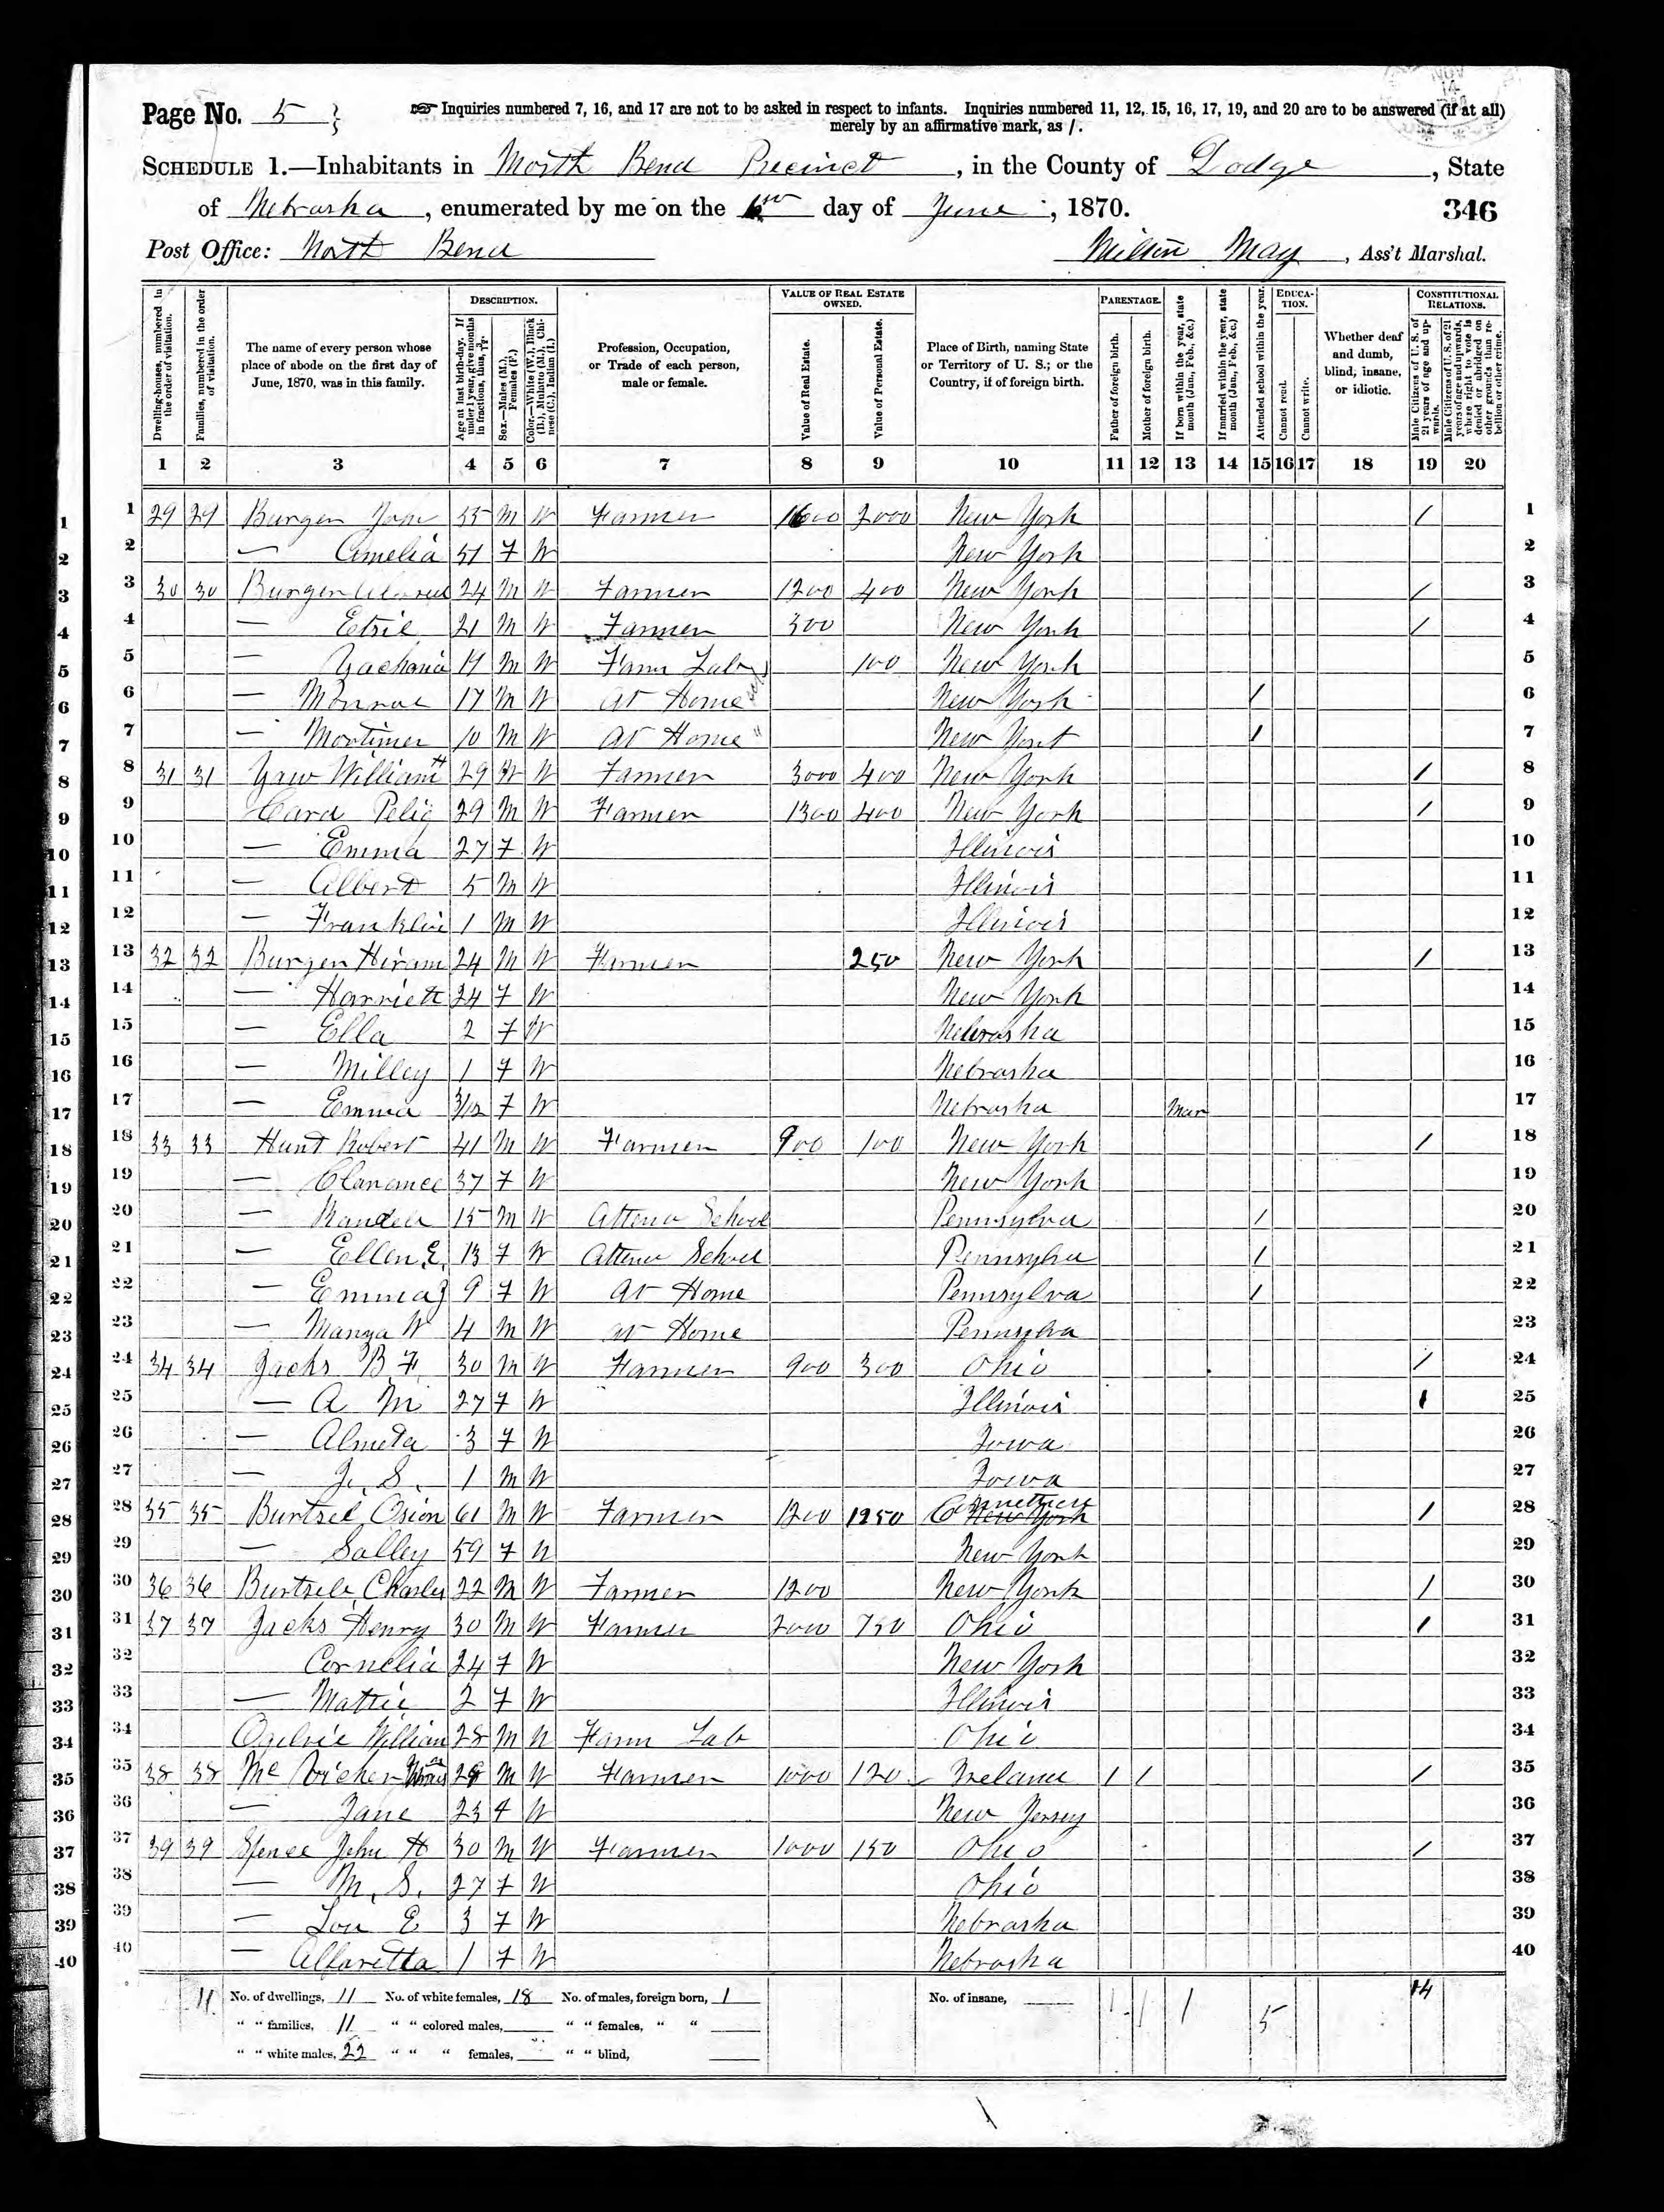 Page No. 5
☞ Inquiries numbered 7, 16, and 17 are not to be asked in respect to infants. Inquiries numbered 11, 12, 15, 16, 17, 19, and 20 are to be answered (if at all)
merely by an affirmative mark, as /.
SCHEDULE 1.—Inhabitants in North Bend Precinct, in the County of Dodge, State
of Nebraska, enumerated by me on the day of June, 1870. 346
Post Office: North Bend Milton May, Ass't Marshal.
Dwelling-houses, numbered in the order of visitation.
Families, numbered in the order of visitation.
The name of every person whose place of abode on the first day of June, 1870, was in this family.
DESCRIPTION.
Age at last birth-day. If under 1 year, give months in fractions, thus, 3/12.
Sex.—Males (M.), Females (F.)
Color.—White (W.), Black (B.), Mulatto (M.), Chinese (C.), Indian (I.)
Profession, Occupation, or Trade of each person, male or female.
VALUE OF REAL ESTATE OWNED.
Value of Real Estate.
Value of Personal Estate.
Place of Birth, naming State or Territory of U. S.; or the Country, if of foreign birth.
PARENTAGE.
Father of foreign birth.
Mother of foreign birth.
If born within the year, state month (Jan., Feb., &c.)
If married within the year, state month (Jan., Feb., &c.)
Attended school within the year.
EDUCATION.
Cannot read.
Cannot write.
Whether deaf and dumb, blind, insane, or idiotic.
CONSTITUTIONAL RELATIONS.
Male Citizens of U. S. of 21 years of age and upwards.
Male Citizens of U. S. of 21 years of age and upwards, where right to vote is denied or abridged on other grounds than rebellion or other crime.
1 2 3 4 5 6 7 8 9 10 11 12 13 14 15 16 17 18 19 20
1 29 29 Burger 55 M W Farmer 1600 2000 New York / 1
2 — Amelia 51 F W New York 2
3 30 30 Burger 24 M W Farmer 1200 400 New York / 3
4 — 21 M W Farmer 300 New York / 4
5 — Zacharia 19 M W Farm Lab 100 New York 5
6 — Monroe 17 M W At Home New York / 6
7 — Mortimer 10 M W At Home " New York / 7
8 31 31 Yaw William H 29 M W Farmer 3000 400 New York / 8
9 Card Pelig 29 M W Farmer 1300 400 New York / 9
10 — Emma 27 F W Illinois 10
11 — Albert 5 M W Illinois 11
12 — Franklin 1 M W Illinois 12
13 32 32 Burger Hiram 24 M W Farmer 250 New York / 13
14 — Harriett 24 F W New York 14
15 — Ella 2 F W Nebraska 15
16 — Milley 1 F W Nebraska 16
17 — Emma 3/12 F W Nebraska Mar 17
18 33 33 Hunt Robert 41 M W Farmer 900 100 New York / 18
19 — 37 F W New York 19
20 — 15 M W Attend School Pennsylva / 20
21 — Ellen E. 13 F W Attend School Pennsylva / 21
22 — Emma J 9 F W At Home Pennsylva / 22
23 — W 4 M W At Home Pennsylva 23
24 34 34 Jacks B. F. 30 M W Farmer 900 300 Ohio / 24
25 — A M 27 F W Illinois / 25
26 — Almeta 3 F W Iowa 26
27 — J. S. 1 M W Iowa 27
28 35 35 Burtsel 61 M W Farmer 1200 1250 Connetticut New York / 28
29 — Salley 59 F W New York 29
30 36 36 Burtsell Charles 22 M W Farmer 1200 New York / 30
31 37 37 Jacks Henry 30 M W Farmer 2000 750 Ohio / 31
32 Cornelia 24 F W New York 32
33 — Mattie 2 F W Illinois 33
34 Ogilvie William 28 M W Farm Lab Ohio 34
35 38 38 Mc Vicker 28 M W Farmer 1000 120 Ireland / / / 35
36 — Jane 23 F W New Jersey 36
37 39 39 Spence John H 30 M W Farmer 1000 150 Ohio / 37
38 — M. S. 27 F W Ohio 38
39 — Lou E 3 F W Nebraska 39
40 — Alfaretta 1 F W Nebraska 40
11 No. of dwellings, 11 No. of white females, 18 No. of males, foreign born, 1 No. of insane, 1 1 1 5 14
" " families, 11 " " colored males, " " females, " "
" " white males, 22 " " " females, " " blind,